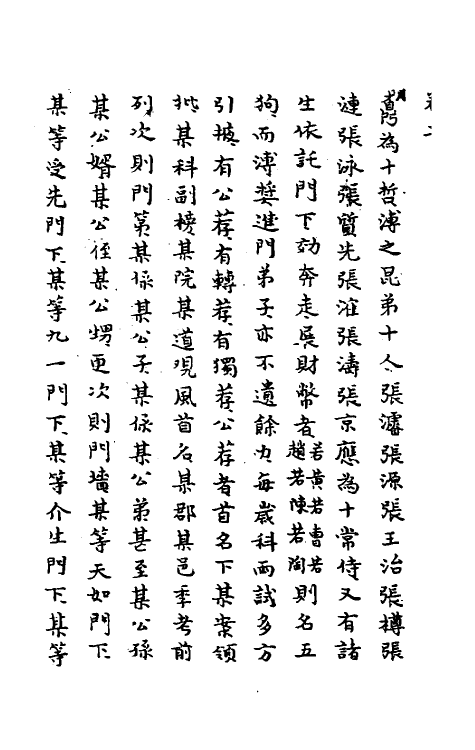 卷上
為十哲溥之昆弟十人張濬張源張王治張樽張
漣張泳張質先張漼張濤張京應為十常侍又有諸
生依託門下効奔走展財幣者若黃若曹若趙若陳若陶則名五
狗而溥獎進門弟子亦不遺餘力每歲科兩試多方
引拔有公荐有轉荐有獨荐公荐者首名下某案領
批某科副榜某院某道觀風首名某郡某邑季考前
列次則門第某係某公子某係某公弟甚至某公孫
某公婿某公侄某公甥更次則門墻某等天如門下
某等受先門下某等九一門下某等介生門下某等